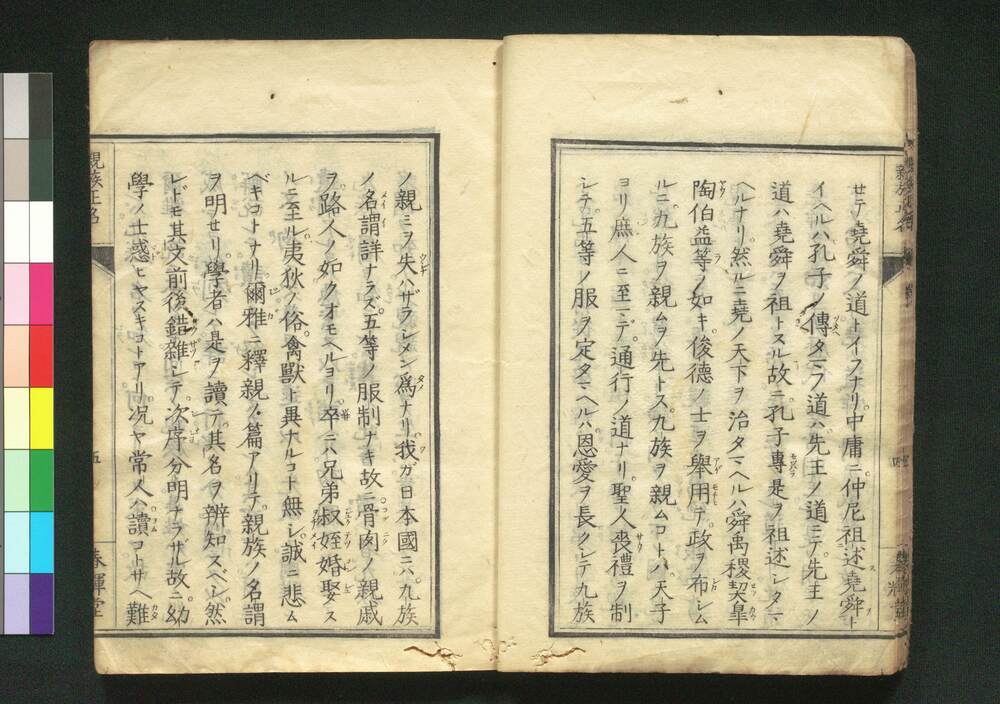 セテ堯舜ノ道トイフナリ中庸ニ仲尼祖述堯舜ト
イヘルハ孔子ノ傳タマフ道ハ先王ノ道ニテ先王ノ
道ハ堯舜ヲ祖トスル故ニ孔子專是ヲ祖述シタマ
ヘルナリ然ルニ堯ノ天下ヲ治タマヘルハ舜禹稷契皐
陶伯益等ノ如キ俊德ノ士ヲ舉用テ政ヲ布シム
ルニ九族ヲ親ムヲ先トス九族ヲ親ムコトハ天子
ヨリ庶人ニ至ニテ通行ノ道ナリ聖人喪禮ヲ制
シテ五等ノ服ヲ定タマヘルハ恩愛ヲ長クシテ九族
ノ親ミヲ失ハザラシメン爲ナリ我ガ日本國ニハ九族
ノ名謂詳ナラズ五等ノ服制ナキ故ニ骨肉ノ親戚
ヲ路人ノ如クオモヘルヨリ卒ニハ兄弟叔姪婚娶ス
ルニ至ル夷狄ノ俗禽獸ト異ナルコト無シ誠ニ悲ム
ベキコトナリ爾雅ニ釋親ノ篇アリテ親族ノ名謂
ヲ明セリ學者ハ是ヲ讀テ其名ヲ辨知スベシ然
レドモ其文前後錯雜シテ次序分明ナラザル故ニ幼
學ノ士惑ヒヤスキコトアリ况ヤ常人ハ讀コトサヘ難
親族正名
五
春暉堂